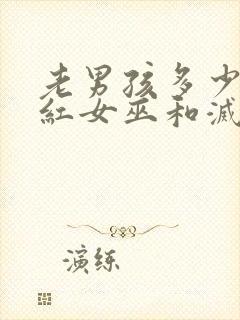 老男孩多少
红女巫和滅
演练